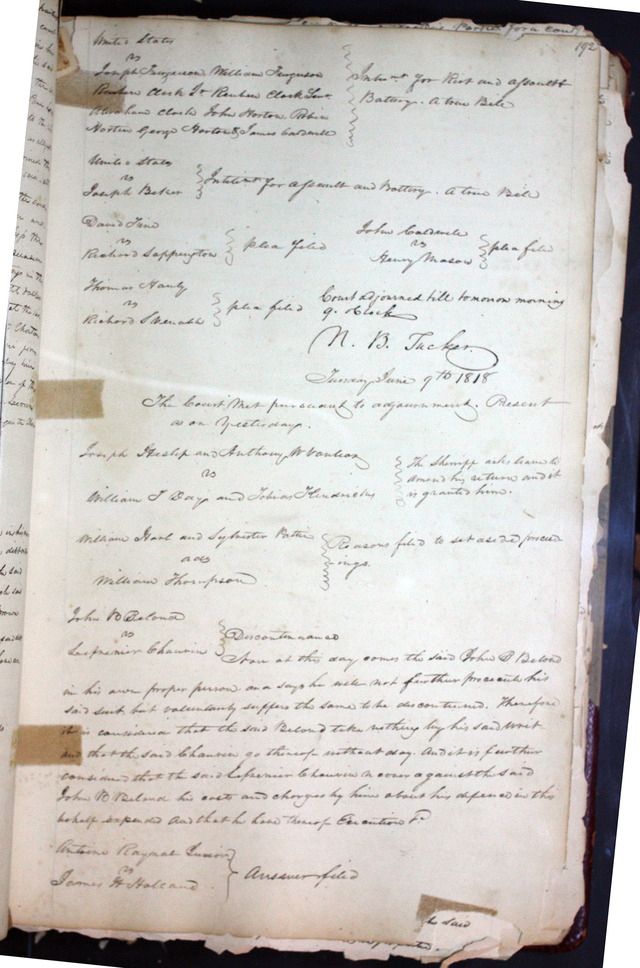 192
United States
vs
Joseph Furguson William Furguson
Reuben Clark Jr Reuben Clark Senr
Abraham Clark John Horton Robin
Horton George Horton & James Caldwell
Indictmt for Riot and assault &
Battery. A true Bill
United States
vs
Joseph Baker
Indictmt for assault and Battery. A true Bill
David
vs
Richard Sappington
plea filed
John Caldwell
vs
Henry Mason
plea filed
Thomas Hanly
vs
Richard
plea filed
Court adjourned till tomorrow morning
9. Clock
N. B. Tucker
Tuesday June 9th 1818
The Court Met pursuant to adjournment, Present
as on Yesterday.
Joseph Heslip and Anthony W Vanlear
vs
William T Day and Tobias Hendricks
The Sheriff asks leave to
amend his return and it
is granted him.
William Harl and Sylvester Pattie
ads
William Thompson
Reasons filed to set aside proceed
ings.
John B Beland
vs
Lefrenier Chauvin
Discontinuance
Now at this day comes the said John B Beland
in his own proper person and says he will not further prosecute his
said suit but voluntarily suffers the same to be discontinued. Therefore
it is considered that the said Beland take nothing by his said writ
and that the said Chauvin go thereof without day. And it is further
considered that the said Lefrenier Chauvin recover against the said
John B Beland his costs and charges by him about his defence in this
behalf expended and that he have thereof Execution &c
Antoine Raymal Junior
vs
James H Holland
Answer filed
said